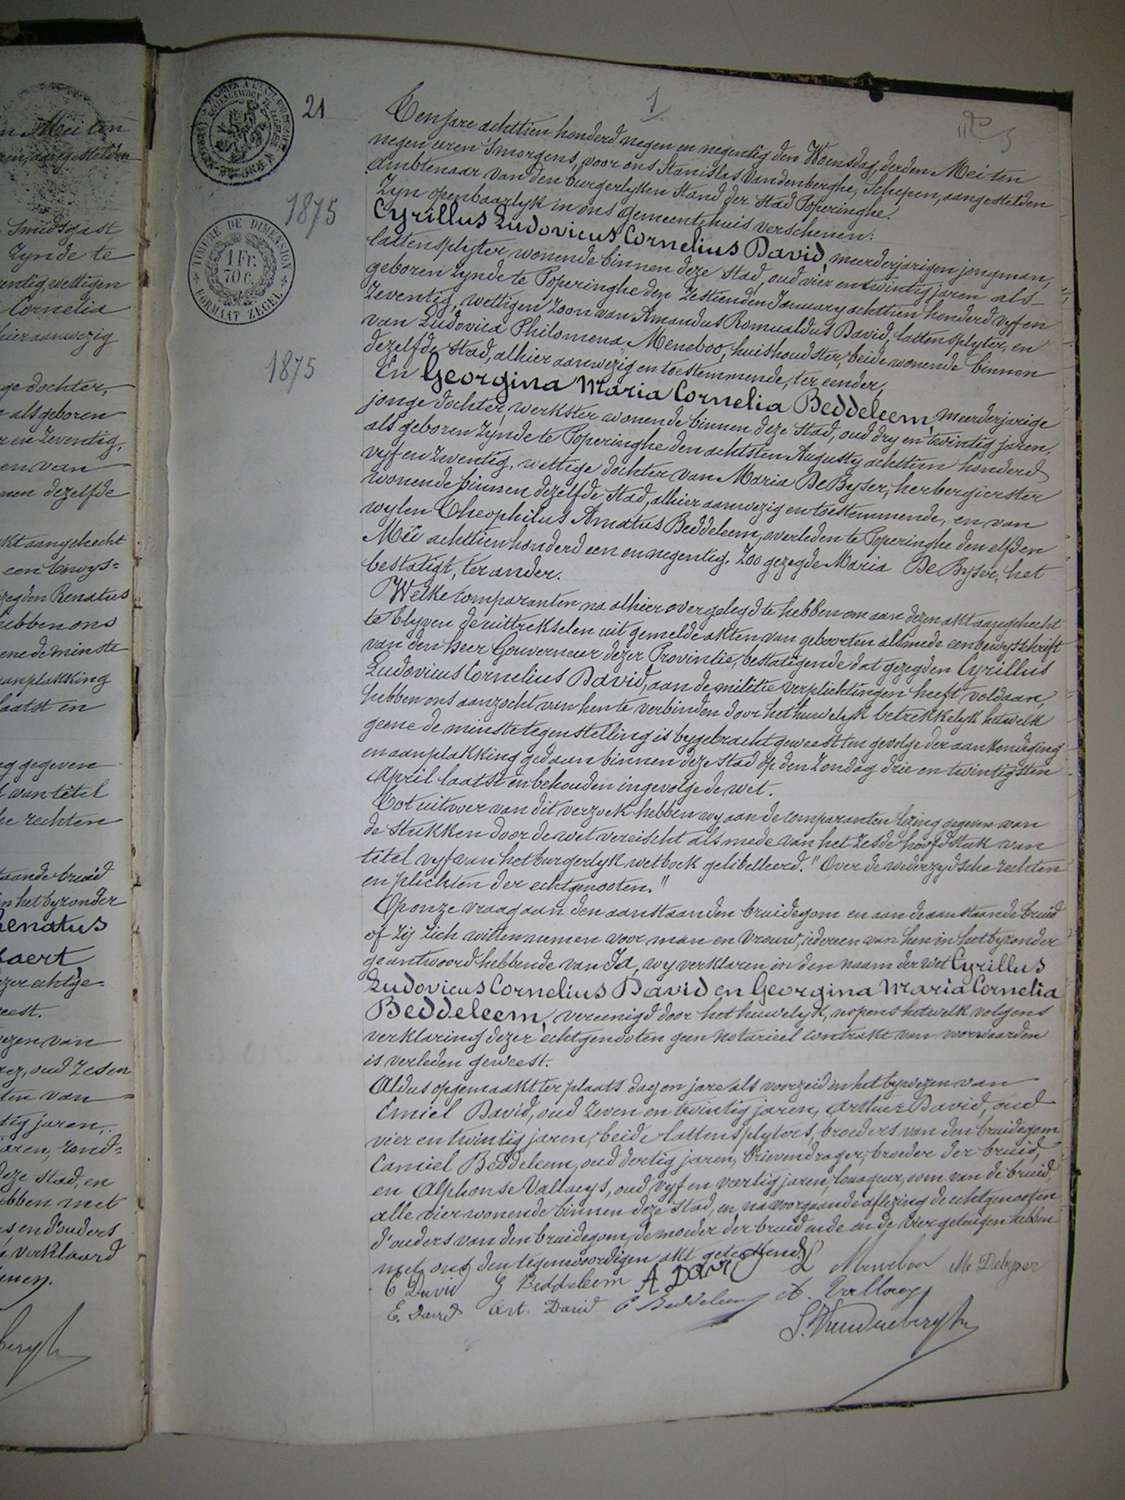 21
1
1875
TIMBRE DE DIMENSION
1 Fr.
70 C.
FORMAAT ZEGEL
1875
Ten jare achttien honderd negen en negentig den Woensdag, derden Mei ten
negen uren Smorgens, voor ons Stanislas Vandenberghe, Schepen, aangestelden
ambtenaar van den burgerlyken Stand der Stad Poperinghe.
Zyn openbaarlyk in ons gemeentehuis verschenen:
Cyrillus Ludovicus Cornelius David, meerderjarigen jongman,
lattensplyter wonende binnen deze Stad, oud vier en twintig jaren als
geboren Zynde te Poperinghe den Zestienden January achttien honderd vyf en
Zeventig, wettigen Zoon van Amandus Romualdus David, lattensplyter, en
van Ludovica Philomena Meneboo, huishoudster, beide wonende binnen
dezelfde Stad, alhier aanwezig en toestemmende, ter eender,
En Georgina Maria Cornelia Beddeleem, meerderjarige
jonge dochter, werkster, wonende binnen deze Stad, oud dry en twintig jaren,
als geboren Zynde te Poperinghe den achtsten Augusty achttien honderd
vyf en Zeventig, wettige dochter van Maria De Byser, herbergierster
wonende binnen dezelfde Stad, alhier aanwezig en toestemmende, en van
wylen Theophilus Amatus Beddeleem, overleden te Poperinghe den elfden
Mei achttien honderd een en negentig. Zoo gezegde Maria De Byser, het
bestatigt, ter ander.
Welke comparanten na alhier overgelegd te hebben om aan dezen akt aangehecht
te blyven de uittrekselen uit gemelde akten van geboorten alsmede een bewysschrift
van den Heer Gouverneur dezer Provintie, bestatigende dat gezegden Cyrillus
Ludovicus Cornelius David, aan de militie verplichtingen heeft voldaan,
hebben ons aanzocht van hen te verbinden door het huwelyk betrekkelyk hetwelk
geene de minste tegenstelling is bygebracht geweest ten gevolge der aankondiging
en aanplakking gedaan binnen deze Stad op den Zondag drie en twintigsten
April laatst en behouden ingevolge de wet.
Tot uitvoer van dit verzoek hebben wy aan de comparanten lezing gegeven van
de Stukken door de wet vereischt alsmede van het Zesde hoofdstuk van
titel vyf van het burgerlyk wetboek gelibelleerd "Over de wederzydsche rechten
en plichten der echtgenooten."
Op onze vraag aan den aanstaanden bruidegom en aan de aanstaande bruid
of Zij Zich willen nemen voor man en vrouw, iedereen van hen in het byzonder
geantwoord hebbende van Ja, wy verklaren in den naam der wet Cyrillus
Ludovicus Cornelius David en Georgina Maria Cornelia
Beddeleem, vereenigd door het huwelyk, nopens hetwelk volgens
verklaring dezer echtgenooten geen notarieel contrakt van voorwaarden
is verleden geweest.
Aldus opgemaakt ter plaats dag en jare als voorzeid in het bywezen van
Emiel David, oud Zeven en twintig jaren, Arthur David, oud
vier en twintig jaren, beide lattensplyters, broeders van den bruidegom
Camiel Beddeleem, oud dertig jaren, brievendrager, broeder der bruid,
en Alphonse Vallaeys, oud vyf en veertig jaren, oom van de bruid
alle vier wonende binnen deze Stad, en na voorgaande aflezing de echtgenooten
d'ouders van den bruidegom, de moeder der bruid mede en de vier getuigen hebben
met ons den tegenwoordigen akt geteekend.
C David G Beddeleem A David L Meneboo M. Debyser
E. David Art. David C Beddeleem A. Vallaeys
S. Vandenberghe